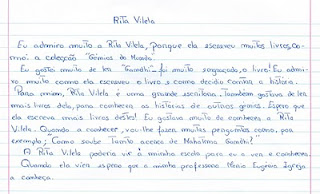 Rita Vilela
Eu admiro muito a Rita Vilela, porque ela escreveu muitos livros, co-
mo: a colecção "Génios do Mundo".
Eu gostei muito de ler "Gandhi" foi muito engraçado, o livro! Eu admi-
ro muito como ela escreveu o livro e como decidiu contar a história.
Para mim, Rita Vilela é uma grande escritora. Também gostava de ler
mais livros dela, para conhecer as histórias de outros génios. Espero que
ela escreva mais livros destes! Eu gostava muito de conhecer a Rita
Vilela. Quando a conhecer, vou-lhe fazer muitas perguntas como, por
exemplo; Como soube tanto acerca de Mahatma Gandhi?
A Rita Vilela poderia vir à minha escola para eu a ver e conhecer.
Quando ela vier espero que a minha professora Maria Eugénia Igreja
a conheça.